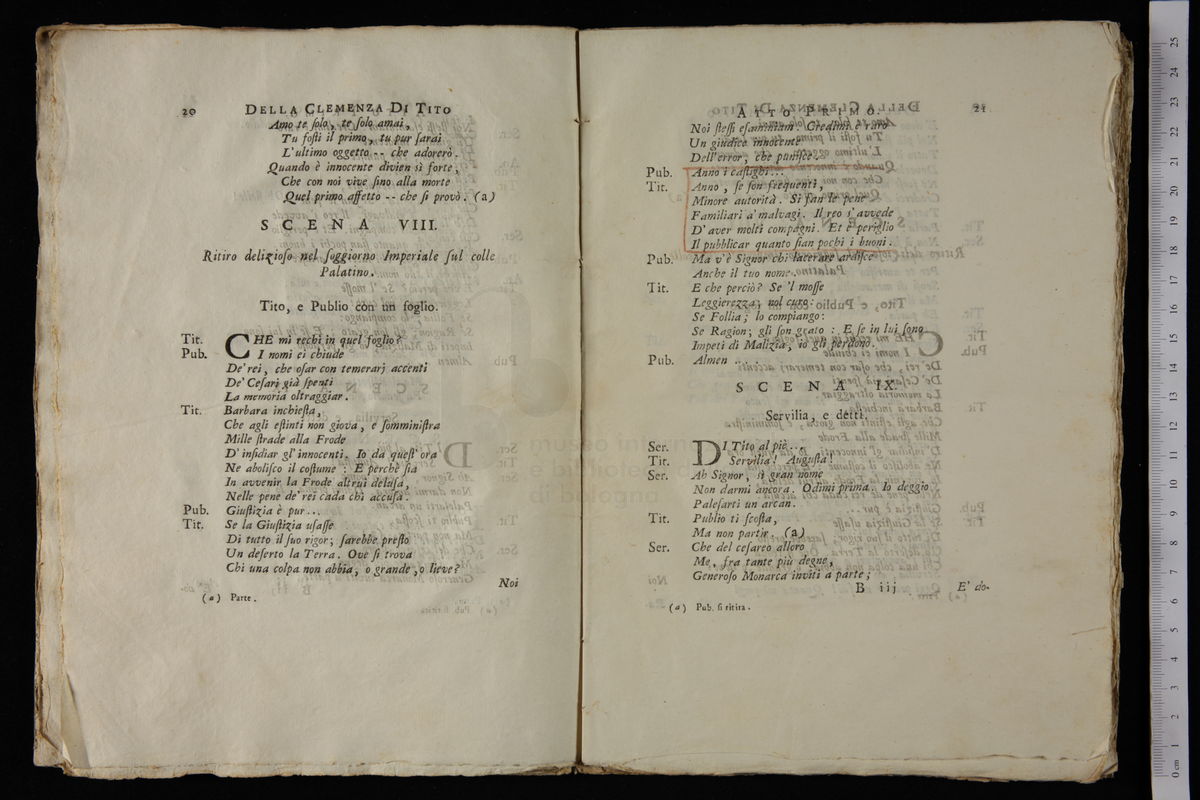 20 DELLA CLEMENZA DI TITO
Amo te ſolo, te ſolo amai,
Tu foſti il primo, tu pur ſarai
L'ultimo oggetto -- che adorerò.
Quando è innocente divien sì forte,
Che con noi vive fino alla morte
Quel primo affetto -- che ſi provò. (a)
SCENA VIII.
Ritiro delizioſo nel ſoggiorno Imperiale ſul colle
Palatino.
Tito, e Publio con un foglio.
Tit. CHE mi rechi in quel foglio?
Pub. I nomi ei chiude
De' rei, che oſar con temerarj accenti
De' Ceſari già ſpenti
La memoria oltraggiar.
Tit. Barbara inchieſta,
Che agli eſtinti non giova, e ſomminiſtra
Mille ſtrade alla Frode
D' inſidiar gl' innocenti. Io da queſt' ora
Ne aboliſco il coſtume: E perchè ſia
In avvenir la Frode altrui deluſa,
Nelle pene de' rei cada chi accuſa.
Pub. Giuſtizia è pur...
Tit. Se la Giuſtizia uſaſſe
Di tutto il ſuo rigor; ſarebbe preſto
Un deſerto la Terra. Ove ſi trova
Chi una colpa non abbia, o grande, o lieve?
Noi
(a) Parte.
ATTO PRIMO. 21
Noi ſteſſi eſaminiam. Credimi è raro
Un giudice innocente
Dell' error, che puniſce.
Pub. Anno i caſtighi...
Tit. Anno, ſe ſon frequenti,
Minore autorità. Si fan le pene
Familiari a' malvagi. Il reo s' avvede
D' aver molti compagni. Et è periglio
Il pubblicar quanto ſian pochi i buoni.
Pub. Ma v'è Signor chi lacerare ardiſce
Anche il tuo nome.
Tit. E che perciò? Se 'l moſſe
Leggierezza; nol curo:
Se Follia; lo compiango:
Se Ragion; gli ſon grato: E ſe in lui ſono
Impeti di Malizia, io gli perdono.
Pub. Almen ....
SCENA IX.
Servilia, e detti.
Ser. DI Tito al piè...
Tit. Servilia! Auguſta!
Ser. Ah Signor, sì gran nome
Non darmi ancora. Odimi prima. Io deggio
Paleſarti un arcan.
Tit. Publio ti ſcoſta,
Ma non partir. (a)
Ser. Che del ceſareo alloro
Me, fra tante più degne,
Generoſo Monarca inviti a parte;
B iij E' do-
(a) Pub. ſi ritira.
museo int
bibliotec
di bologna
0 cm 1 2 3 4 5 6 7 8 9 10 11 12 13 14 15 16 17 18 19 20 21 22 23 24 25